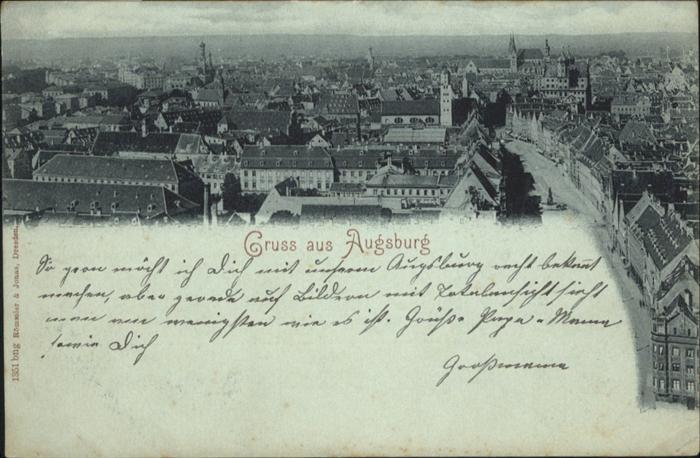 Gruss aus Augsburg
So gern möcht ich Dich mit unserm Augsburg recht bekannt
machen, aber gerade auf Bildern mit Totalansicht sieht
man am wenigsten wie es ist. Grüße Papa & Mama
sowie Dich
Großmama
1351 bug Römmler & Jonas, Dresden.